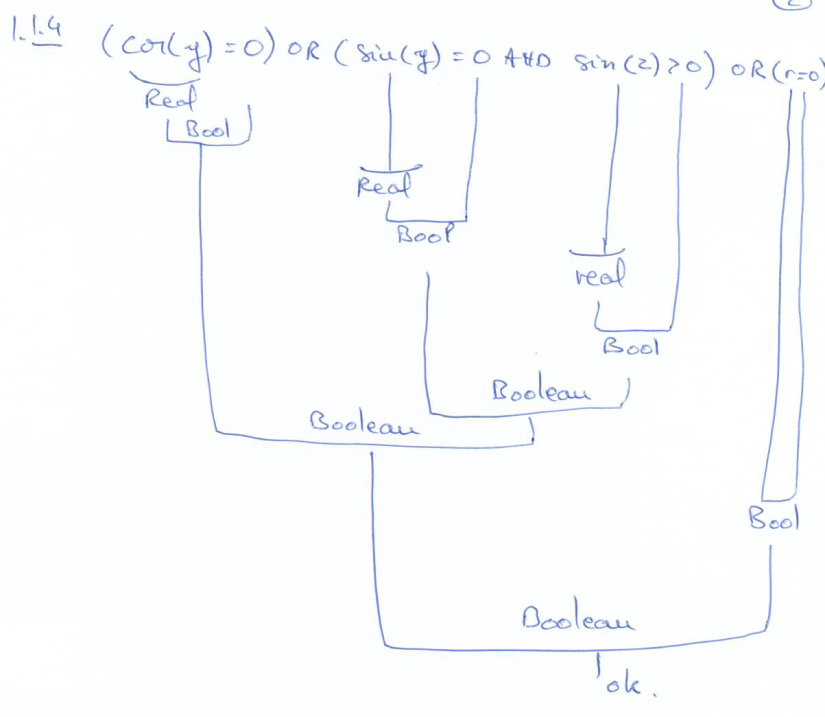 2
1.1.4 (cos(y) = 0) OR (sin(y) = 0 AND sin(z) > 0) OR (r=0)
Real
Bool
Real
Bool
real
Bool
Boolean
Boolean
Bool
Boolean
ok.